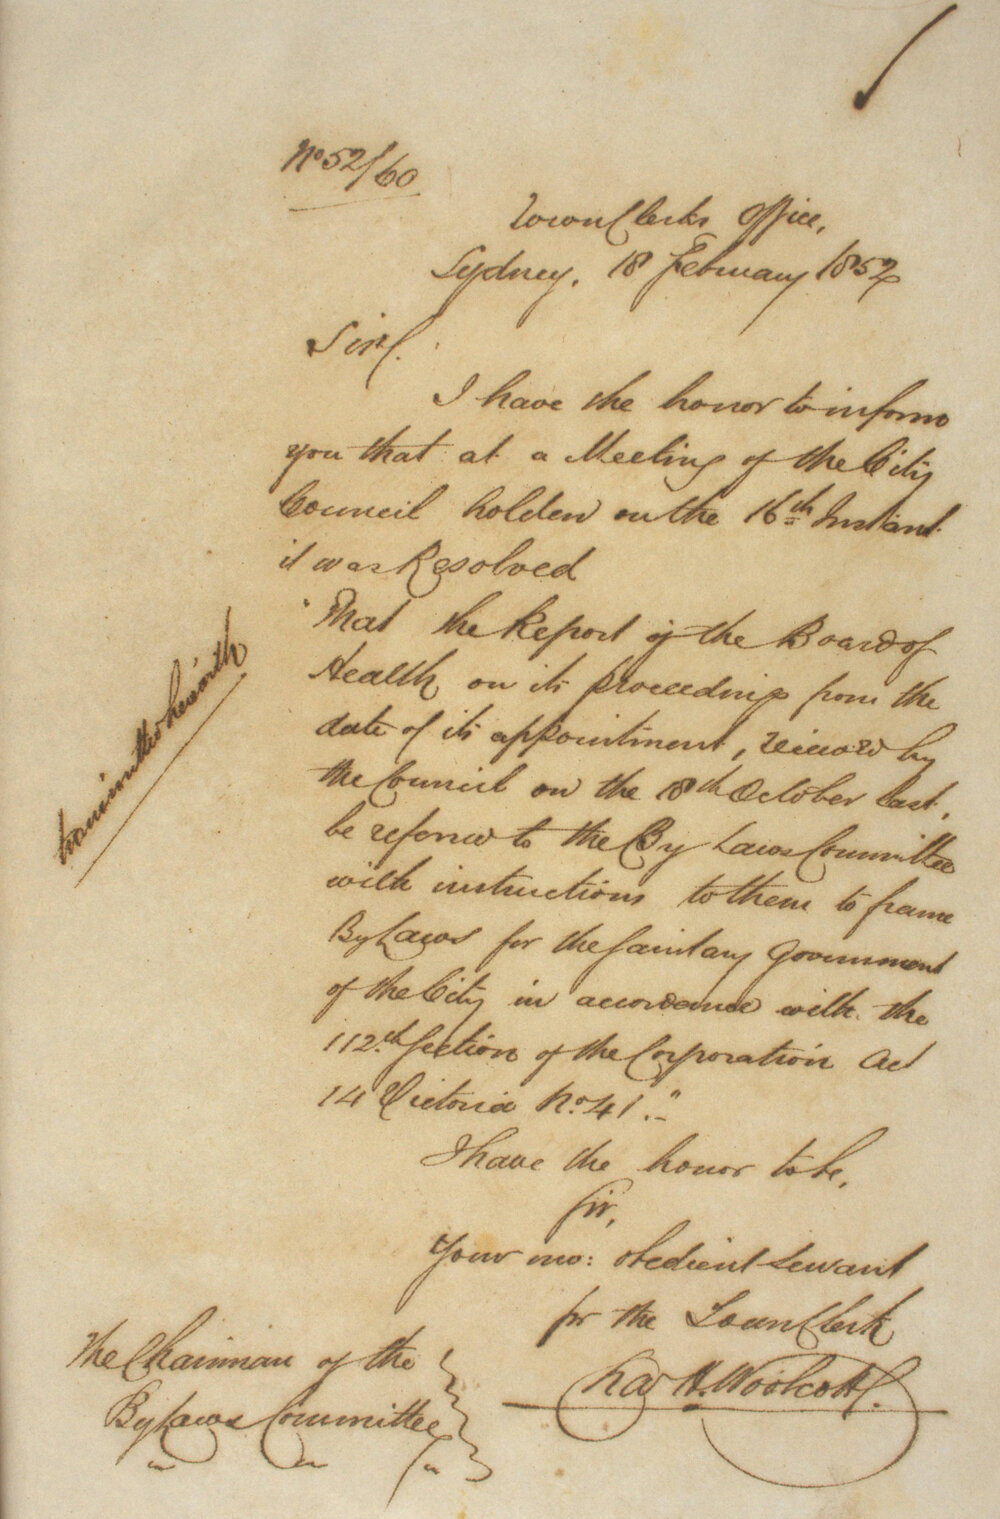 No 52/60
Town Clerks Office,
Sydney, 18 February 1852
Sir,
I have the honor to inform
you that at a Meeting of the City
Council holden on the 16th Instant
it was Resolved
"That the Report of the Board of
Health on its proceedings from the
date of its appointment, received by
the Council on the 18th October last,
be referred to the By Laws Committee
with instructions to them to frame
By Laws for the Sanitary Government
of the City in accordance with the
112th Section of the Corporation Act
14 Victoria No. 41."
I have the honor to be,
Sir,
Your mo: obedient Servant
for the Town Clerk
Chas H. Woolcott
The Chairman of the
By Laws Committee
transmitted herewith